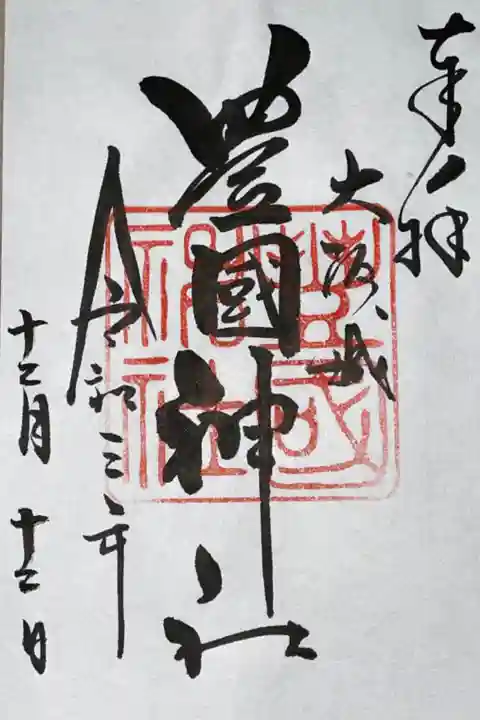 奉拝
大阪城
豊國神社
令和三年
十二月十二日